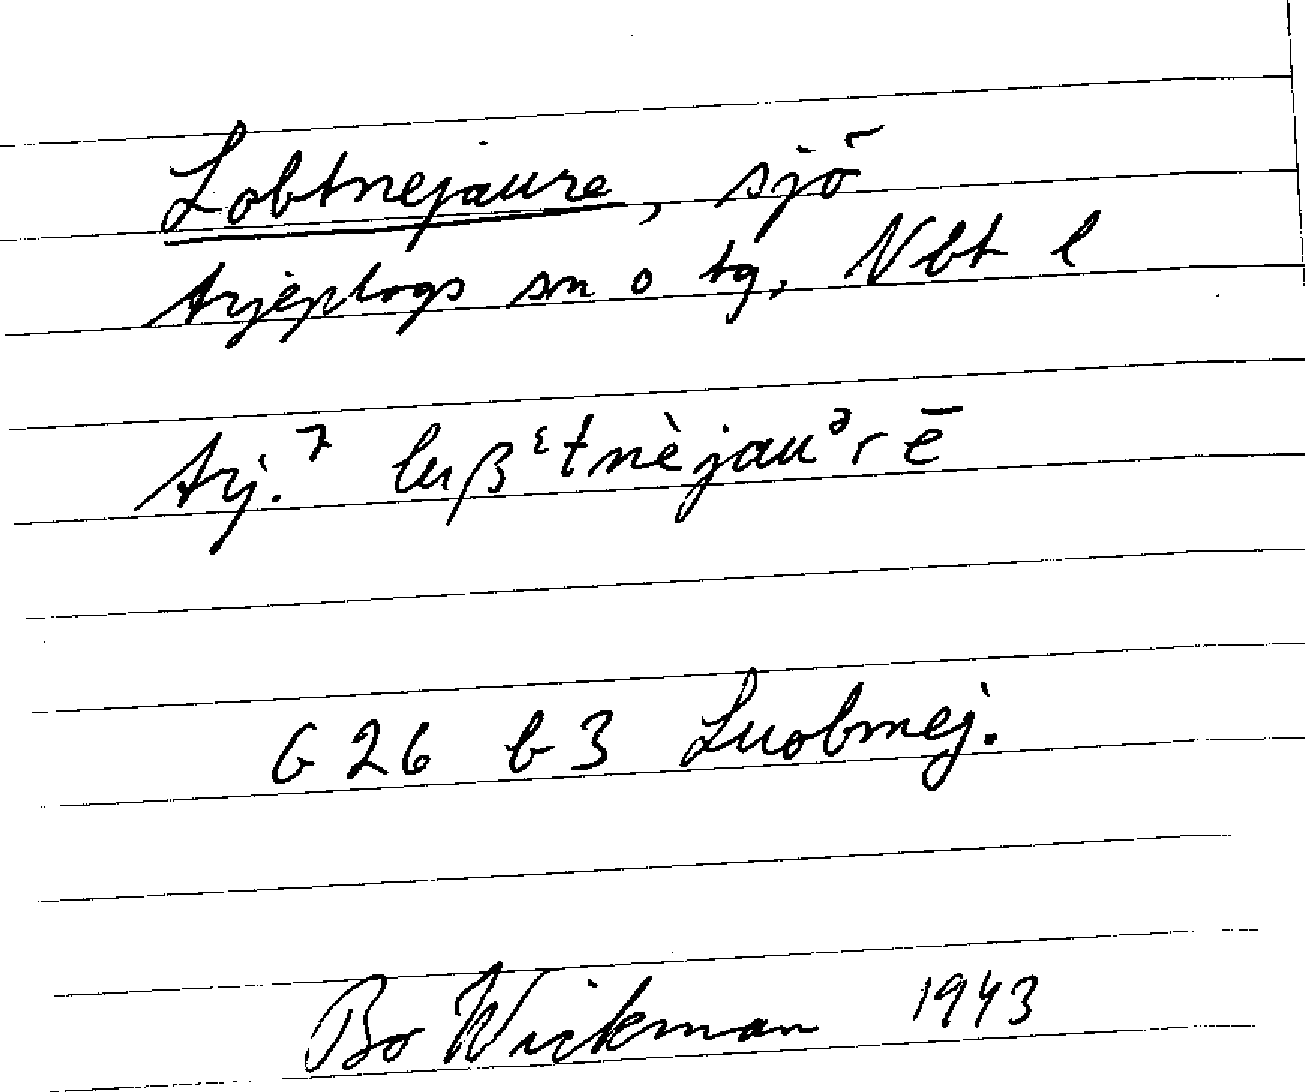 Lobtnejaure, sjö
Arjeplogs sn o tg, Nbt l
Arj.⁷ luβᵋtnèjauᵊrē
G 26 b 3 Luobmej.
Bo Wickman 1943